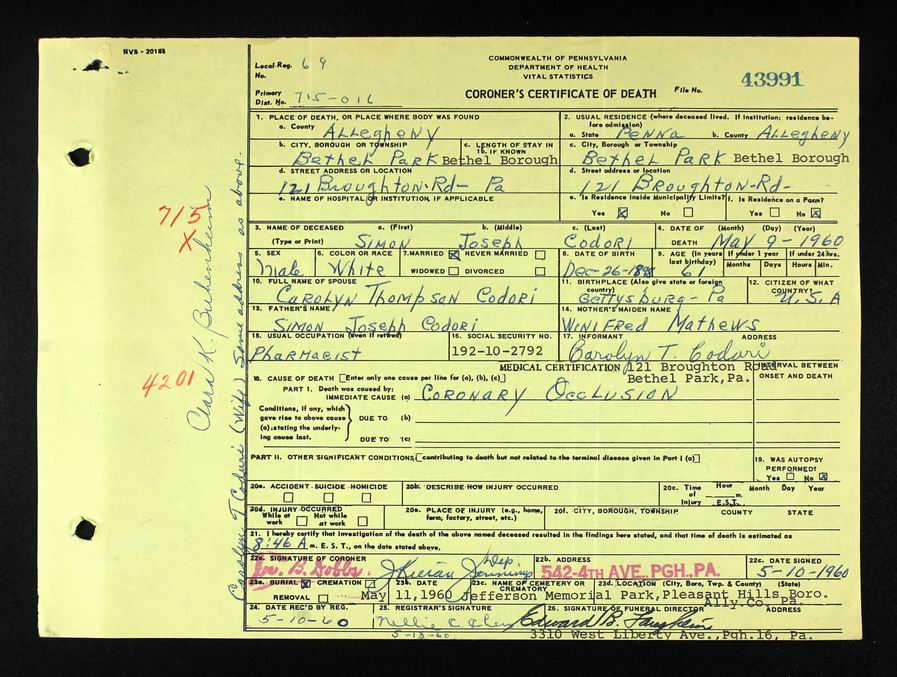 HVS - 20184
Local Reg. No. 69
COMMONWEALTH OF PENNSYLVANIA
DEPARTMENT OF HEALTH
VITAL STATISTICS
43991
Primary Dist. No. 715-016
CORONER'S CERTIFICATE OF DEATH
File No.
1. PLACE OF DEATH, OR PLACE WHERE BODY WAS FOUND
a. County Allegheny
2. USUAL RESIDENCE (where deceased lived. If institution: residence before admission)
a. State Penna b. County Allegheny
b. CITY, BOROUGH OR TOWNSHIP Bethel Park Bethel Borough
c. LENGTH OF STAY IN 1b. IF KNOWN
c. City, Borough or Township
Bethel Park Bethel Borough
d. STREET ADDRESS OR LOCATION
121 Broughton-Rd- Pa
d. Street address or location
121 Broughton-Rd-
e. NAME OF HOSPITAL OR INSTITUTION, IF APPLICABLE
e. Is Residence Inside Municipality Limits? Yes X No
f. Is Residence on a Farm? Yes No X
3. NAME OF DECEASED (Type or Print)
a. (First) b. (Middle) c. (Last)
Simon Joseph Codori
4. DATE OF DEATH (Month) (Day) (Year)
May 9-1960
5. SEX Male
6. COLOR OR RACE White
7. MARRIED X NEVER MARRIED
WIDOWED DIVORCED
8. DATE OF BIRTH Dec-26-1898
9. AGE (In years last birthday) 61
If under 1 year Months Days
If under 24 hrs. Hours Min.
10. FULL NAME OF SPOUSE
Carolyn Thompson Codori
11. BIRTHPLACE (Also give state or foreign country)
Gettysburg- Pa
12. CITIZEN OF WHAT COUNTRY? U.S.A
13. FATHER'S NAME
Simon Joseph Codori
14. MOTHER'S MAIDEN NAME
Winifred Mathews
15. USUAL OCCUPATION (even if retired)
Pharmacist
16. SOCIAL SECURITY NO.
192-10-2792
17. INFORMANT ADDRESS
Carolyn T. Codori
MEDICAL CERTIFICATION
121 Broughton Road
Bethel Park,Pa.
INTERVAL BETWEEN ONSET AND DEATH
18. CAUSE OF DEATH [Enter only one cause per line for (a), (b), (c)]
PART 1. Death was caused by:
IMMEDIATE CAUSE (a) Coronary Occlusion
Conditions, if any, which gave rise to above cause (a), stating the underlying cause last.
DUE TO (b)
DUE TO (c)
PART II. OTHER SIGNIFICANT CONDITIONS, [contributing to death but not related to the terminal disease given in Part I (a)]
19. WAS AUTOPSY PERFORMED?
Yes No X
20a. ACCIDENT SUICIDE HOMICIDE
20b. DESCRIBE HOW INJURY OCCURRED
20c. Time of Injury Hour m. E.S.T. Month Day Year
20d. INJURY OCCURRED
While at work Not while at work
20e. PLACE OF INJURY (e.g., home, farm, factory, street, etc.)
20f. CITY, BOROUGH, TOWNSHIP COUNTY STATE
21. I hereby certify that investigation of the death of the above named deceased resulted in the findings here stated, and that time of death is estimated as
8:46 A m. E. S. T., on the date stated above.
22a. SIGNATURE OF CORONER
B. Dobbs Dep
22b. ADDRESS
542-4TH AVE. PGH. PA.
22c. DATE SIGNED
5-10-1960
23a. BURIAL X CREMATION
REMOVAL
23b. DATE May 11,1960
23c. NAME OF CEMETERY OR CREMATORY Jefferson Memorial Park,
23d. LOCATION (City, Boro, Twp. & County) (State)
Pleasant Hills Boro.
Ally.Co. Pa.
24. DATE REC'D BY REG.
5-10-60
25. REGISTRAR'S SIGNATURE
Nellie C.
5-13-60
26. SIGNATURE OF FUNERAL DIRECTOR ADDRESS
Edward B.
3310 West Liberty Ave.,Pgh.16, Pa.
715
X
4201
Clara K.
Carolyn T Codori (Wife) Same address as above.